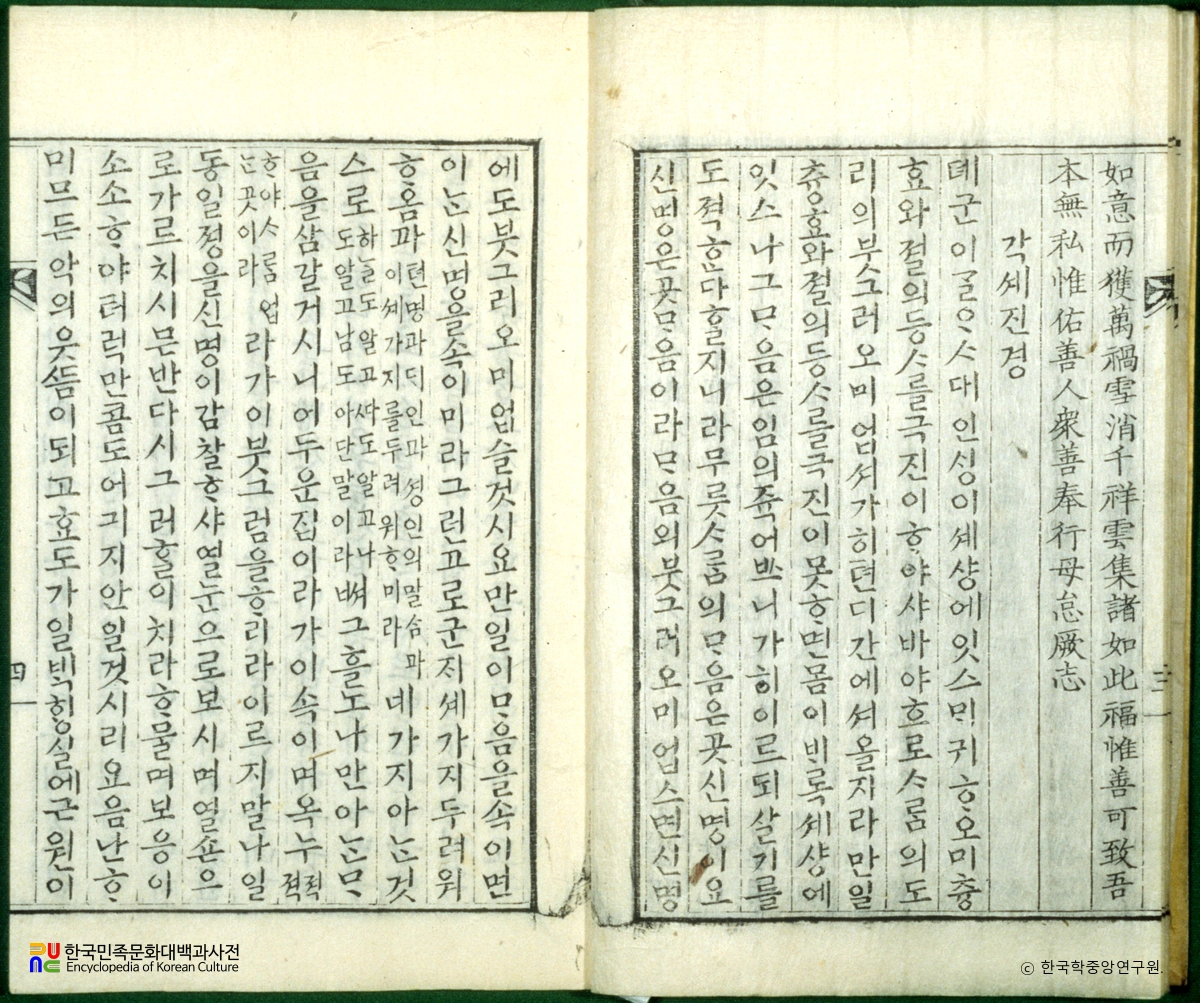 如意而獲萬禍雪消千祥雲集諸如此福惟善可致吾
本無私惟佑善人衆善奉行毋怠厥志
각셰진경
뎨군이ᄀᆞᆯᄋᆞᄉᆞ대인싱이셰샹에잇스ᄆᆡ귀ᄒᆞ오미츙
효와졀의등ᄉᆞ를극진이ᄒᆞ야샤바야흐로ᄉᆞᄅᆞᆷ의도
리의부ᄭᅳ러오미업셔가히텬디간에셔올지라만일
츙효와졀의등ᄉᆞ를극진이못ᄒᆞ면몸이비록셰샹에
잇스나그ᄆᆞ음은임의쥭어ᄡᅳ니가히이르되살기를
도젹ᄒᆞᆫ다ᄒᆞᆯ지니라무릇ᄉᆞᄅᆞᆷ의ᄆᆞ음은곳신명이요
신명은곳ᄆᆞ음이라ᄆᆞ음의붓그러오미업스면신명
에도붓그리오미업슬것시요만일이ᄆᆞ음을속이면
이ᄂᆞᆫ신명을속이미라그런고로군ᄌᆞ셰가지두려워
ᄒᆞ옴과
텬명과대인과셩인의말ᄉᆞᆷ과
이셰가지를두려워ᄒᆞ미라
네가지아ᄂᆞᆫ것
스로
하ᄂᆞᆯ도알고ᄯᅡ도알고나
도알고남도아단말이라
ᄡᅥ그흘노나만아ᄂᆞᆫᄆᆞ
음을삼갈거시니어두운집이라가이속이며옥누
젹
젹
ᄒᆞ야ᄉᆞᄅᆞᆷ업
ᄂᆞᆫ곳이라
라가이붓그럼을ᄒᆞ리라이르지말나일
동일졍을신명이감찰ᄒᆞ샤열눈으로보시며열손으
로가르치시믄반다시그러ᄒᆞᆯ이치라ᄒᆞ물며보응이
소소ᄒᆞ야터럭만콤도어긔지안일것시리요음난ᄒᆞ
미므든악의웃ᄯᅳᆷ이되고효도가일ᄇᆡᆨᄒᆡᆼ실에근원이
三
四
한국민족문화대백과사전
Encyclopedia of Korean Culture
© 한국학중앙연구원